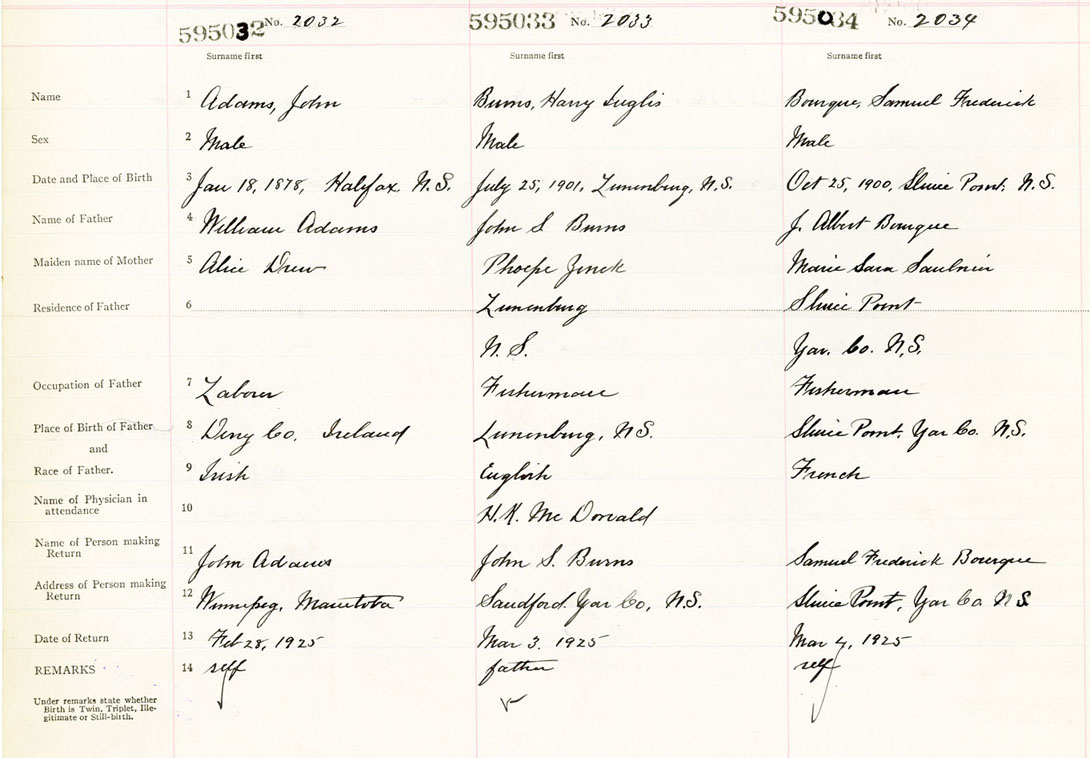 595032 No. 2032 595033 No. 2033 595034 No. 2034
Surname first Surname first Surname first
Name 1 Adams, John Burns, Harry Inglis Bourque, Samuel Frederick
Sex 2 Male Male Male
Date and Place of Birth 3 Jan 18, 1878, Halifax N.S. July 25, 1901, Lunenburg, N.S. Oct 25, 1900, Sluice Point, N.S.
Name of Father 4 William Adams John S Burns J. Albert Bourque
Maiden name of Mother 5 Alice Drew Phoepe Zinck Marie Sara Saulnier
Residence of Father 6 Lunenburg Sluice Point
N.S. Yar. Co. N.S.
Occupation of Father 7 Laborer Fisherman Fisherman
Place of Birth of Father 8 Derry Co, Ireland Lunenburg, N.S. Sluice Point, Yar Co. N.S.
and
Race of Father. 9 Irish English French
Name of Physician in
attendance 10 H.K. McDonald
Name of Person making
Return 11 John Adams John S. Burns Samuel Frederick Bourque
Address of Person making
Return 12 Winnipeg, Manitoba Sandford. Yar Co, N.S. Sluice Point, Yar Co N.S
Date of Return 13 Feb 28, 1925 Mar 3. 1925 Mar 4, 1925
REMARKS 14 self father self
Under remarks state whether
Birth is Twin, Triplet, Ille-
gitimate or Still-birth.